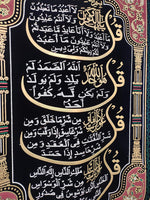 لَا أَعْبُدُ مَا تَعْبُدُونَ
وَلَا أَنْتُمْ عَابِدُونَ مَا أَعْبُدُ
وَلَا أَنَا عَابِدٌ مَا عَبَدْتُمْ
وَلَا أَنْتُمْ عَابِدُونَ مَا أَعْبُدُ
لَكُمْ دِينُكُمْ وَلِيَ دِينِ
قُلْ هُوَ اللَّهُ أَحَدٌ اللَّهُ الصَّمَدُ لَمْ
يَلِدْ وَلَمْ يُولَدْ
وَلَمْ يَكُنْ لَهُ كُفُوًا
أَحَدٌ
قُلْ أَعُوذُ بِرَبِّ الْفَلَقِ مِنْ شَرِّ مَا خَلَقَ وَمِنْ
شَرِّ غَاسِقٍ إِذَا وَقَبَ وَمِنْ
شَرِّ النَّفَّاثَاتِ فِي الْعُقَدِ وَمِنْ
شَرِّ حَاسِدٍ إِذَا حَسَدَ
قُلْ أَعُوذُ بِرَبِّ النَّاسِ مَلِكِ النَّاسِ إِلَهِ النَّاسِ
مِنْ شَرِّ الْوَسْوَاسِ